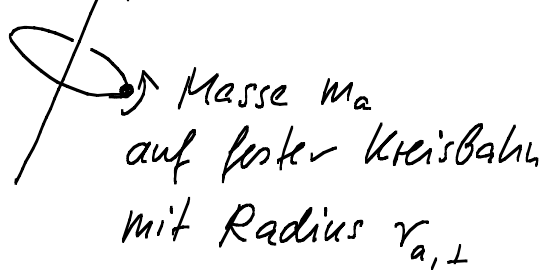 Masse mₐ
auf fester Kreisbahn
mit Radius rₐ,⊥